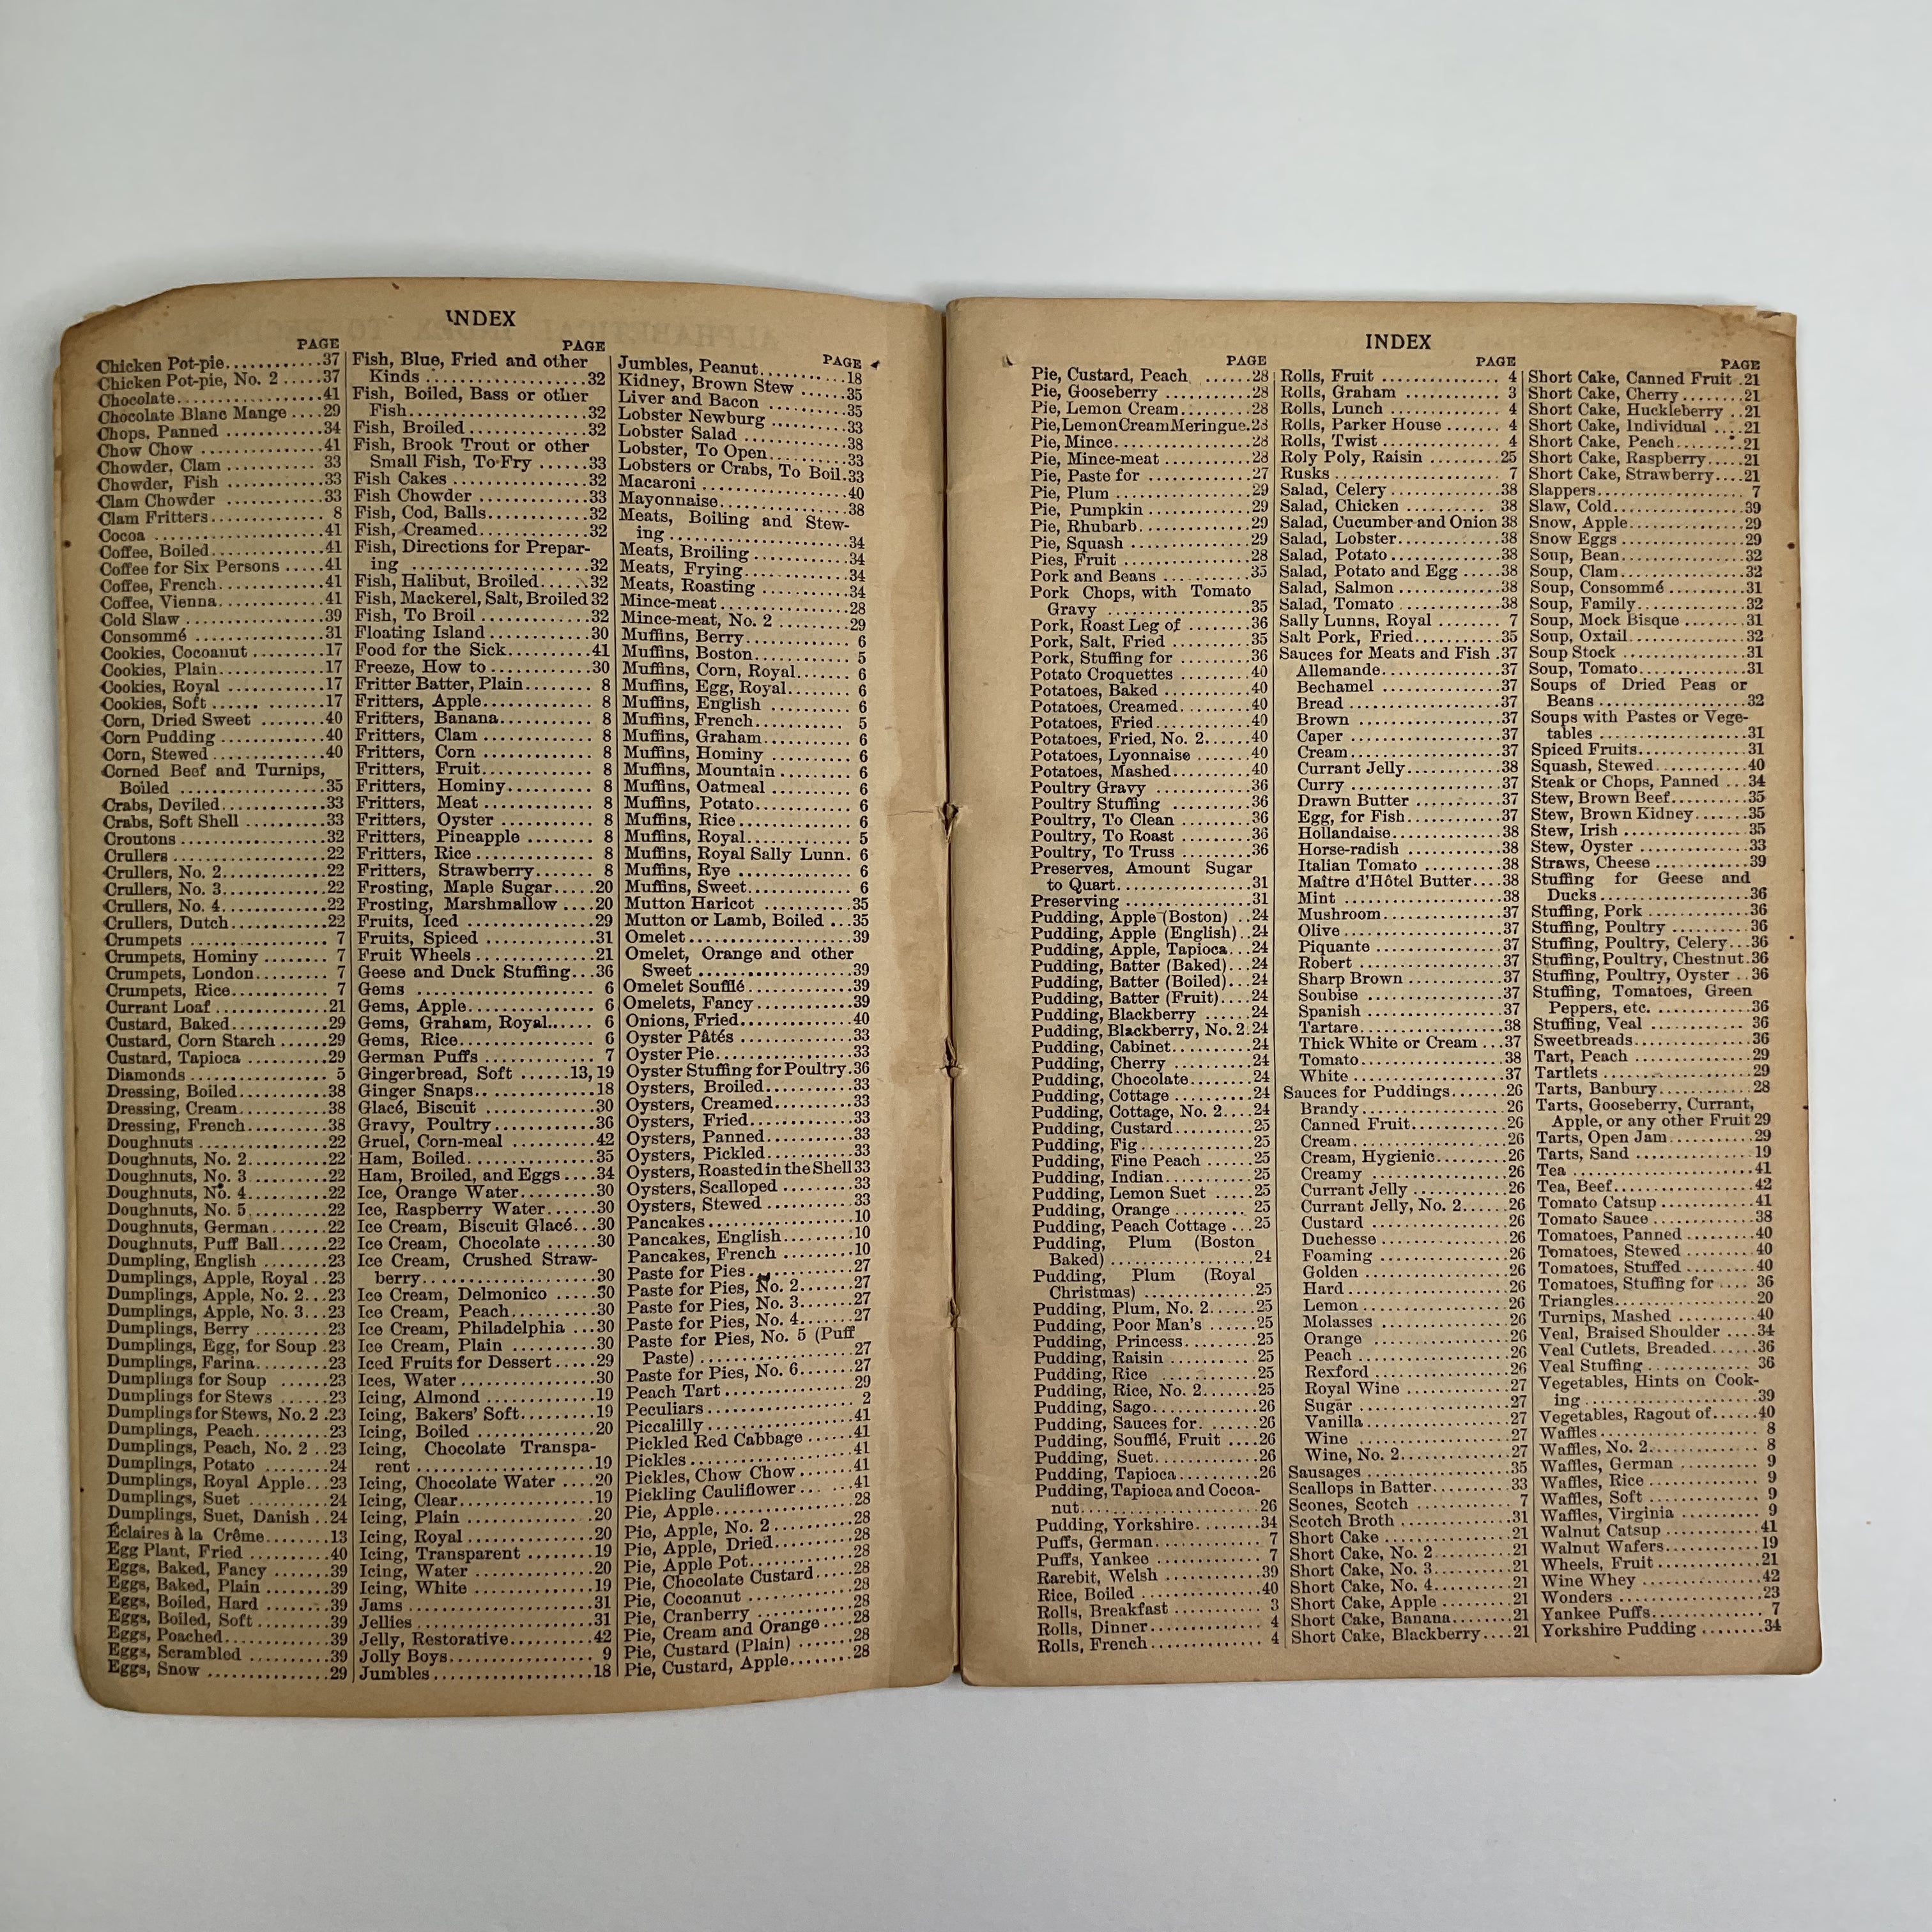 INDEX
PAGE
Chicken Pot-pie............37
Chicken Pot-pie, No. 2.....37
Chocolate..................41
Chocolate Blanc Mange....29
Chops, Panned............34
Chow Chow................41
Chowder, Clam............33
Chowder, Fish............33
Clam Chowder............33
Clam Fritters............8
Cocoa....................41
Coffee, Boiled............41
Coffee for Six Persons.....41
Coffee, French............41
Coffee, Vienna............41
Cold Slaw................39
Consommé................31
Cookies, Cocoanut........17
Cookies, Plain............17
Cookies, Royal............17
Cookies, Soft............17
Corn, Dried Sweet........40
Corn Pudding............40
Corn, Stewed............40
Corned Beef and Turnips,
Boiled................35
Crabs, Deviled............33
Crabs, Soft Shell..........33
Croutons................32
Crullers................22
Crullers, No. 2............22
Crullers, No. 3............22
Crullers, No. 4............22
Crullers, Dutch............22
Crumpets................7
Crumpets, Hominy........7
Crumpets, London.........7
Crumpets, Rice............7
Currant Loaf............21
Custard, Baked............29
Custard, Corn Starch.....29
Custard, Tapioca..........29
Diamonds................5
Dressing, Boiled..........38
Dressing, Cream..........38
Dressing, French..........38
Doughnuts................22
Doughnuts, No. 2..........22
Doughnuts, No. 3..........22
Doughnuts, No. 4..........22
Doughnuts, No. 5..........22
Doughnuts, German.......22
Doughnuts, Puff Ball......22
Dumpling, English........23
Dumplings, Apple, Royal..23
Dumplings, Apple, No. 2...23
Dumplings, Apple, No. 3...23
Dumplings, Berry.........23
Dumplings, Egg, for Soup.23
Dumplings, Farina.........23
Dumplings for Soup......23
Dumplings for Stews.....23
Dumplings for Stews, No. 2.23
Dumplings, Peach.........23
Dumplings, Peach, No. 2..23
Dumplings, Potato........24
Dumplings, Royal Apple...23
Dumplings, Suet..........24
Dumplings, Suet, Danish..24
Éclaires à la Crême........13
Egg Plant, Fried..........40
Eggs, Baked, Fancy.......39
Eggs, Baked, Plain........39
Eggs, Boiled, Hard........39
Eggs, Boiled, Soft.........39
Eggs, Poached............39
Eggs, Scrambled..........39
Eggs, Snow..............29
PAGE
Fish, Blue, Fried and other
Kinds................32
Fish, Boiled, Bass or other
Fish..................32
Fish, Broiled............32
Fish, Brook Trout or other
Small Fish, To Fry......33
Fish Cakes..............32
Fish Chowder............33
Fish, Cod, Balls..........32
Fish, Creamed............32
Fish, Directions for Prepar-
ing..................32
Fish, Halibut, Broiled......32
Fish, Mackerel, Salt, Broiled 32
Fish, To Broil............32
Floating Island..........30
Food for the Sick.........41
Freeze, How to..........30
Fritter Batter, Plain.......8
Fritters, Apple............8
Fritters, Banana..........8
Fritters, Clam............8
Fritters, Corn............8
Fritters, Fruit............8
Fritters, Hominy..........8
Fritters, Meat............8
Fritters, Oyster..........8
Fritters, Pineapple........8
Fritters, Rice............8
Fritters, Strawberry.......8
Frosting, Maple Sugar.....20
Frosting, Marshmallow....20
Fruits, Iced..............29
Fruits, Spiced............31
Fruit Wheels............21
Geese and Duck Stuffing...36
Gems....................6
Gems, Apple..............6
Gems, Graham, Royal......6
Gems, Rice..............6
German Puffs............7
Gingerbread, Soft......13, 19
Ginger Snaps............18
Glacé, Biscuit............30
Gravy, Poultry............36
Gruel, Corn-meal........42
Ham, Boiled..............35
Ham, Broiled, and Eggs....34
Ice, Orange Water.........30
Ice, Raspberry Water......30
Ice Cream, Biscuit Glacé...30
Ice Cream, Chocolate.....30
Ice Cream, Crushed Straw-
berry..................30
Ice Cream, Delmonico.....30
Ice Cream, Peach.........30
Ice Cream, Philadelphia...30
Ice Cream, Plain..........30
Iced Fruits for Dessert.....29
Ices, Water..............30
Icing, Almond............19
Icing, Bakers' Soft.........19
Icing, Boiled............20
Icing, Chocolate Transpa-
rent..................19
Icing, Chocolate Water....20
Icing, Clear..............19
Icing, Plain..............20
Icing, Royal..............20
Icing, Transparent........19
Icing, Water..............20
Icing, White..............19
Jams....................31
Jellies..................31
Jelly, Restorative..........42
Jolly Boys................9
Jumbles..................18
PAGE
Jumbles, Peanut..........18
Kidney, Brown Stew......35
Liver and Bacon..........35
Lobster Newburg..........33
Lobster Salad............38
Lobster, To Open..........33
Lobsters or Crabs, To Boil.33
Macaroni................40
Mayonnaise..............38
Meats, Boiling and Stew-
ing....................34
Meats, Broiling..........34
Meats, Frying............34
Meats, Roasting..........34
Mince-meat..............28
Mince-meat, No. 2........29
Muffins, Berry............6
Muffins, Boston............5
Muffins, Corn, Royal.......6
Muffins, Egg, Royal........6
Muffins, English..........6
Muffins, French............5
Muffins, Graham..........6
Muffins, Hominy..........6
Muffins, Mountain........6
Muffins, Oatmeal..........6
Muffins, Potato............6
Muffins, Rice..............6
Muffins, Royal............5
Muffins, Royal Sally Lunn. 6
Muffins, Rye..............6
Muffins, Sweet............6
Mutton Haricot..........35
Mutton or Lamb, Boiled...35
Omelet..................39
Omelet, Orange and other
Sweet..................39
Omelet Soufflé............39
Omelets, Fancy............39
Onions, Fried............40
Oyster Pâtés..............33
Oyster Pie................33
Oyster Stuffing for Poultry.36
Oysters, Broiled..........33
Oysters, Creamed..........33
Oysters, Fried............33
Oysters, Panned..........33
Oysters, Pickled..........33
Oysters, Roasted in the Shell 33
Oysters, Scalloped........33
Oysters, Stewed..........33
Pancakes................10
Pancakes, English.........10
Pancakes, French.........10
Paste for Pies............27
Paste for Pies, No. 2.......27
Paste for Pies, No. 3.......27
Paste for Pies, No. 4.......27
Paste for Pies, No. 5 (Puff
Paste)..................27
Paste for Pies, No. 6.......27
Peach Tart..............29
Peculiars................2
Piccalilli................41
Pickled Red Cabbage.....41
Pickles..................41
Pickles, Chow Chow......41
Pickling Cauliflower......41
Pie, Apple................28
Pie, Apple, No. 2..........28
Pie, Apple, Dried..........28
Pie, Apple Pot............28
Pie, Chocolate Custard.....28
Pie, Cocoanut............28
Pie, Cranberry............28
Pie, Cream and Orange....28
Pie, Custard (Plain).......28
Pie, Custard, Apple........28
INDEX
PAGE
Pie, Custard, Peach......28
Pie, Gooseberry..........28
Pie, Lemon Cream.........28
Pie, Lemon Cream Meringue.28
Pie, Mince................28
Pie, Mince-meat..........28
Pie, Paste for............27
Pie, Plum................29
Pie, Pumpkin............29
Pie, Rhubarb............29
Pie, Squash..............29
Pies, Fruit..............28
Pork and Beans..........35
Pork Chops, with Tomato
Gravy................35
Pork, Roast Leg of........36
Pork, Salt, Fried..........35
Pork, Stuffing for.........36
Potato Croquettes........40
Potatoes, Baked..........40
Potatoes, Creamed.........40
Potatoes, Fried............40
Potatoes, Fried, No. 2......40
Potatoes, Lyonnaise.......40
Potatoes, Mashed..........40
Poultry Gravy............36
Poultry Stuffing..........36
Poultry, To Clean.........36
Poultry, To Roast.........36
Poultry, To Truss.........36
Preserves, Amount Sugar
to Quart................31
Preserving..............31
Pudding, Apple (Boston)..24
Pudding, Apple (English)..24
Pudding, Apple, Tapioca...24
Pudding, Batter (Baked)...24
Pudding, Batter (Boiled)...24
Pudding, Batter (Fruit)....24
Pudding, Blackberry......24
Pudding, Blackberry, No. 2.24
Pudding, Cabinet..........24
Pudding, Cherry..........24
Pudding, Chocolate........24
Pudding, Cottage..........24
Pudding, Cottage, No. 2....24
Pudding, Custard..........25
Pudding, Fig..............25
Pudding, Fine Peach......25
Pudding, Indian..........25
Pudding, Lemon Suet.....25
Pudding, Orange..........25
Pudding, Peach Cottage...25
Pudding, Plum (Boston
Baked)................24
Pudding, Plum (Royal
Christmas)............25
Pudding, Plum, No. 2......25
Pudding, Poor Man's.....25
Pudding, Princess.........25
Pudding, Raisin..........25
Pudding, Rice............25
Pudding, Rice, No. 2.......25
Pudding, Sago............26
Pudding, Sauces for.......26
Pudding, Soufflé, Fruit....26
Pudding, Suet............26
Pudding, Tapioca..........26
Pudding, Tapioca and Cocoa-
nut....................26
Pudding, Yorkshire........34
Puffs, German............7
Puffs, Yankee............7
Rarebit, Welsh..........39
Rice, Boiled..............40
Rolls, Breakfast..........3
Rolls, Dinner............4
Rolls, French............4
PAGE
Rolls, Fruit..............4
Rolls, Graham............3
Rolls, Lunch............4
Rolls, Parker House.......4
Rolls, Twist..............4
Roly Poly, Raisin.........25
Rusks..................7
Salad, Celery............38
Salad, Chicken............38
Salad, Cucumber and Onion 38
Salad, Lobster............38
Salad, Potato............38
Salad, Potato and Egg.....38
Salad, Salmon............38
Salad, Tomato............38
Sally Lunns, Royal........7
Salt Pork, Fried..........35
Sauces for Meats and Fish.37
Allemande..............37
Bechamel..............37
Bread..................37
Brown................37
Caper..................37
Cream..................37
Currant Jelly............38
Curry..................37
Drawn Butter..........37
Egg, for Fish............37
Hollandaise............38
Horse-radish............38
Italian Tomato..........38
Maître d'Hôtel Butter....38
Mint..................38
Mushroom..............37
Olive..................37
Piquante..............37
Robert................37
Sharp Brown............37
Soubise................37
Spanish................37
Tartare................38
Thick White or Cream...37
Tomato................38
White................37
Sauces for Puddings.......26
Brandy................26
Canned Fruit............26
Cream..................26
Cream, Hygienic.........26
Creamy................26
Currant Jelly............26
Currant Jelly, No. 2......26
Custard................26
Duchesse..............26
Foaming..............26
Golden................26
Hard..................26
Lemon................26
Molasses..............26
Orange................26
Peach..................26
Rexford................26
Royal Wine............27
Sugar..................27
Vanilla................27
Wine..................27
Wine, No. 2............27
Sausages................35
Scallops in Batter..........33
Scones, Scotch............7
Scotch Broth............31
Short Cake..............21
Short Cake, No. 2..........21
Short Cake, No. 3..........21
Short Cake, No. 4..........21
Short Cake, Apple........21
Short Cake, Banana........21
Short Cake, Blackberry....21
PAGE
Short Cake, Canned Fruit.21
Short Cake, Cherry........21
Short Cake, Huckleberry..21
Short Cake, Individual....21
Short Cake, Peach.........21
Short Cake, Raspberry.....21
Short Cake, Strawberry....21
Slappers..................7
Slaw, Cold................39
Snow, Apple..............29
Snow Eggs..............29
Soup, Bean..............32
Soup, Clam..............32
Soup, Consommé..........31
Soup, Family............32
Soup, Mock Bisque.......31
Soup, Oxtail..............32
Soup Stock..............31
Soup, Tomato............31
Soups of Dried Peas or
Beans................32
Soups with Pastes or Vege-
tables................31
Spiced Fruits............31
Squash, Stewed..........40
Steak or Chops, Panned...34
Stew, Brown Beef..........35
Stew, Brown Kidney.......35
Stew, Irish..............35
Stew, Oyster............33
Straws, Cheese..........39
Stuffing for Geese and
Ducks..................36
Stuffing, Pork............36
Stuffing, Poultry..........36
Stuffing, Poultry, Celery...36
Stuffing, Poultry, Chestnut.36
Stuffing, Poultry, Oyster..36
Stuffing, Tomatoes, Green
Peppers, etc.............36
Stuffing, Veal............36
Sweetbreads..............36
Tart, Peach..............29
Tartlets..................29
Tarts, Banbury............28
Tarts, Gooseberry, Currant,
Apple, or any other Fruit 29
Tarts, Open Jam..........29
Tarts, Sand..............19
Tea....................41
Tea, Beef................42
Tomato Catsup..........41
Tomato Sauce............38
Tomatoes, Panned........40
Tomatoes, Stewed........40
Tomatoes, Stuffed.........40
Tomatoes, Stuffing for....36
Triangles................20
Turnips, Mashed..........40
Veal, Braised Shoulder....34
Veal Cutlets, Breaded......36
Veal Stuffing............36
Vegetables, Hints on Cook-
ing....................39
Vegetables, Ragout of......40
Waffles..................8
Waffles, No. 2............8
Waffles, German..........9
Waffles, Rice............9
Waffles, Soft............9
Waffles, Virginia..........9
Walnut Catsup............41
Walnut Wafers............19
Wheels, Fruit............21
Wine Whey..............42
Wonders................23
Yankee Puffs..............7
Yorkshire Pudding........34